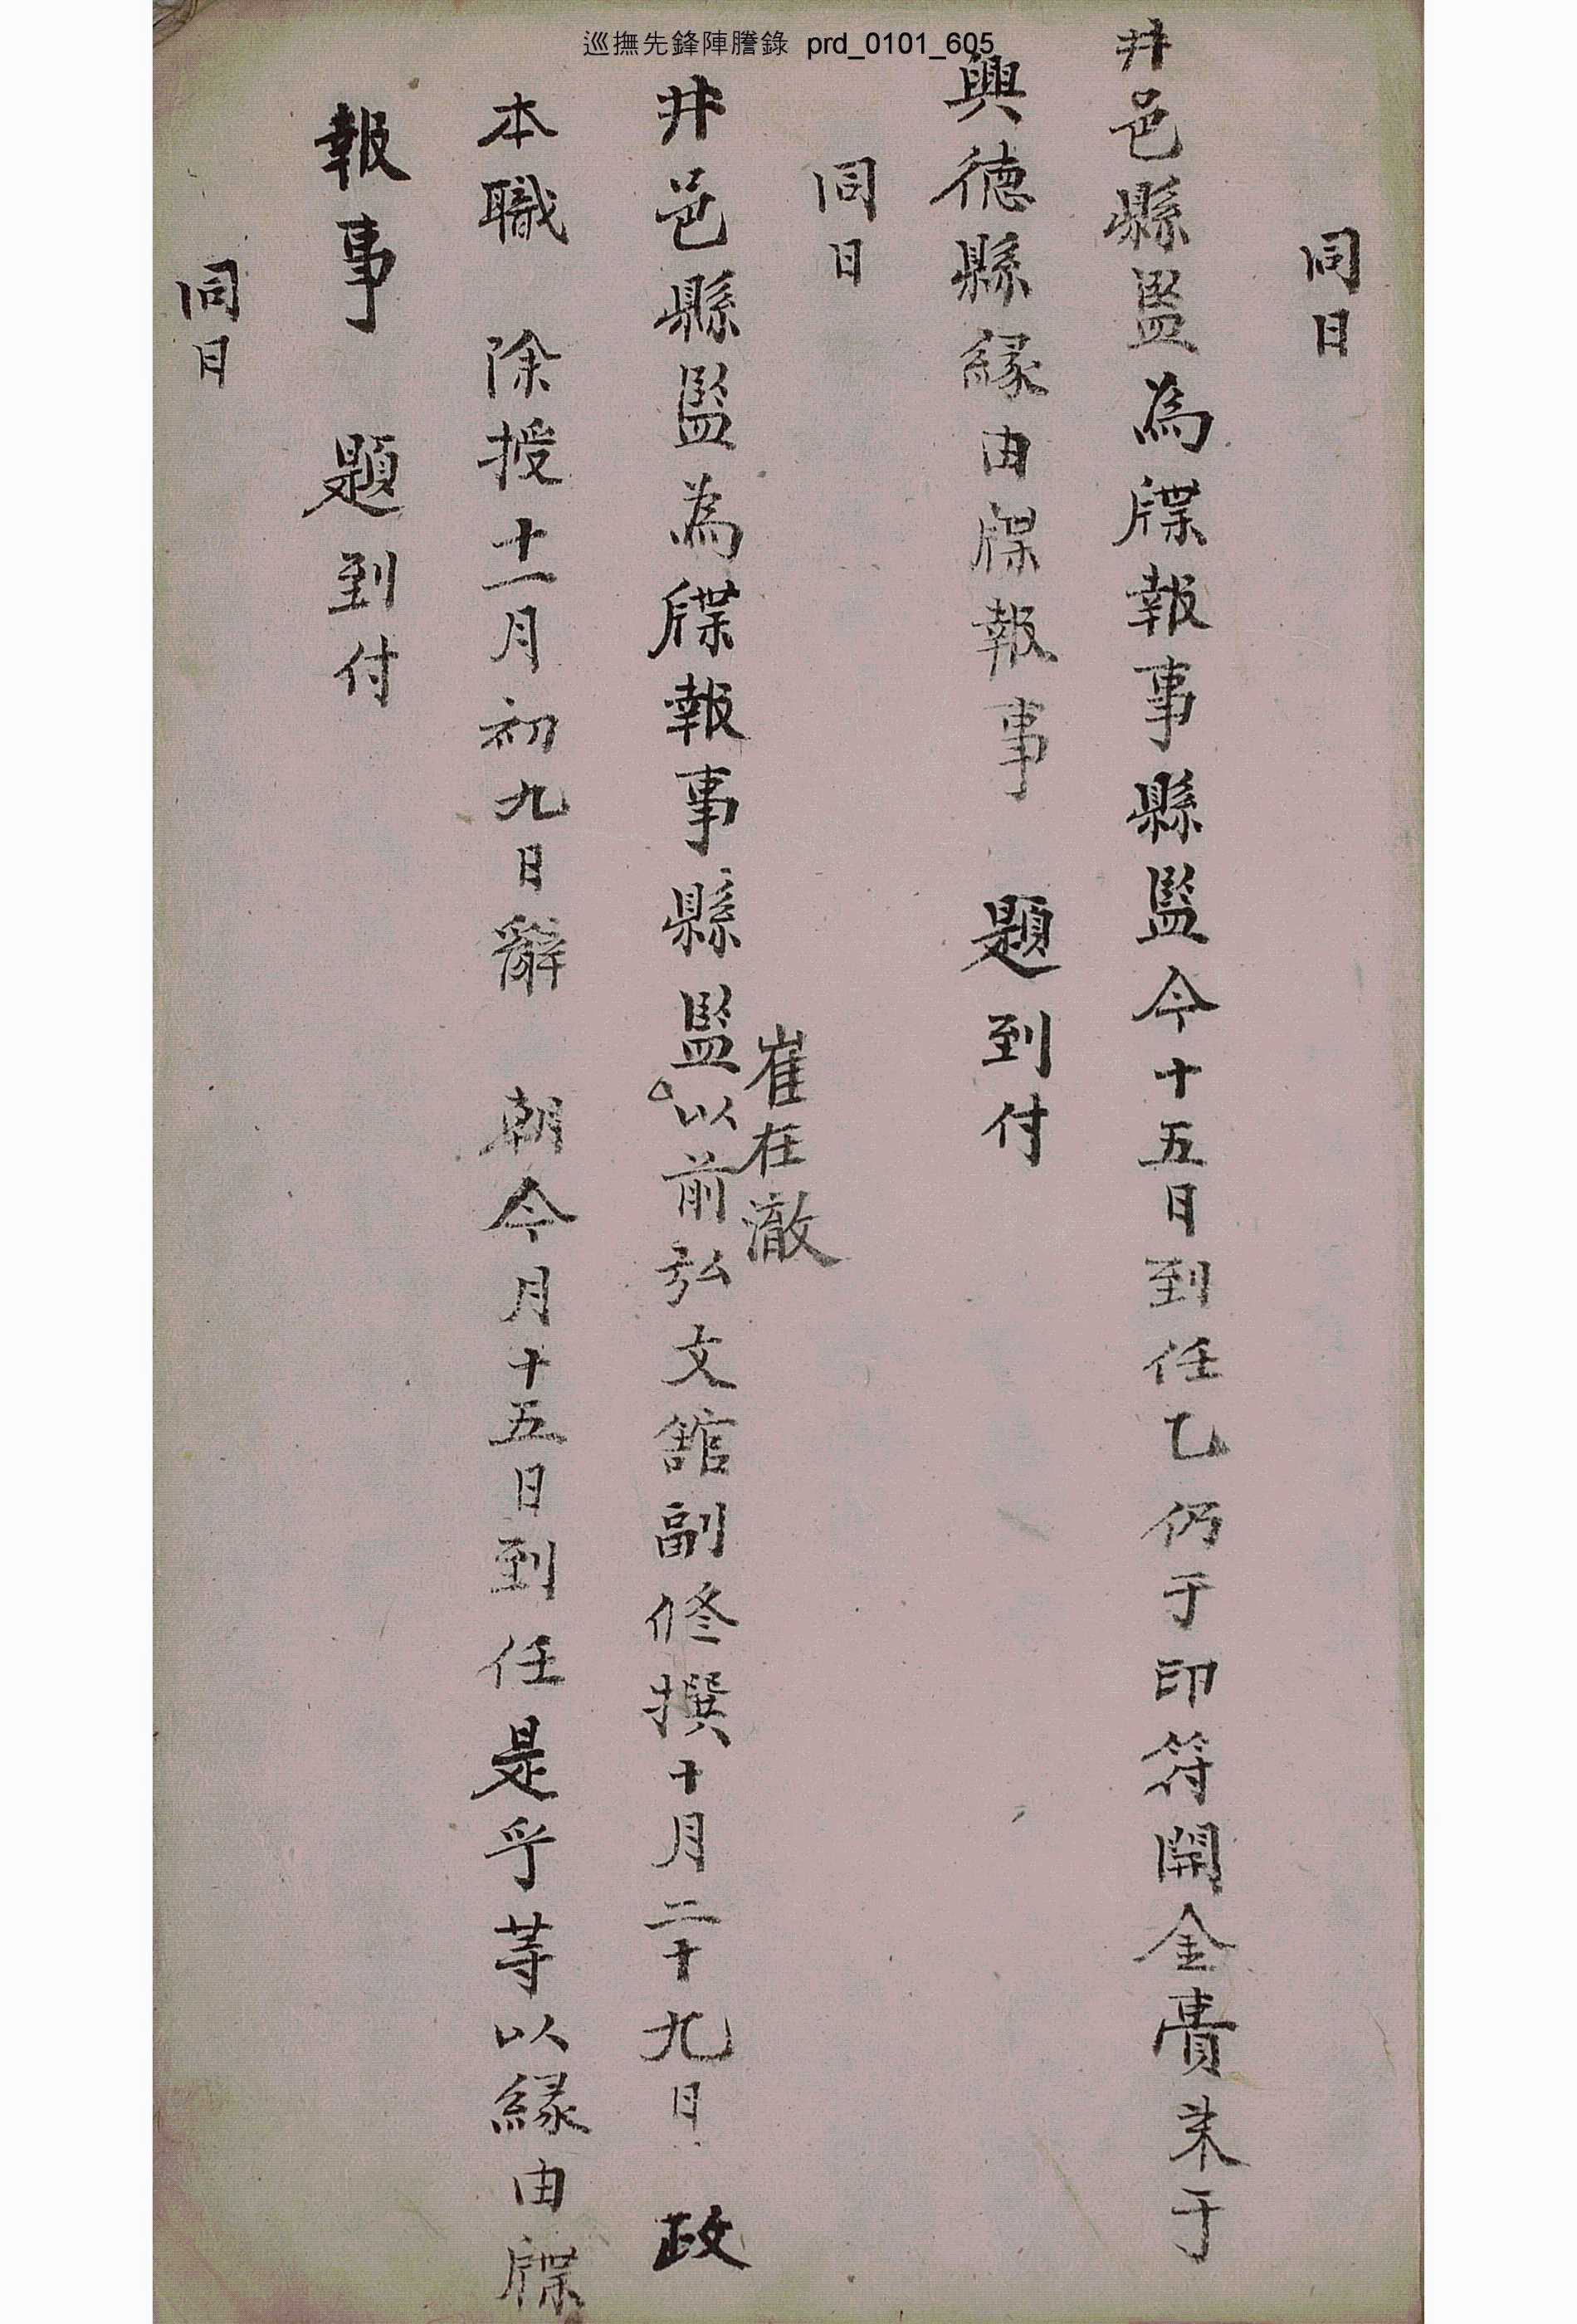 巡撫先鋒陣謄錄 prd_0101_605
同日
井邑縣監為牒報事縣監今十五日到任乙仍于印符開金賷来于
興德縣緣由牒報事 題到付
同日
井邑縣監為牒報事縣監以前弘文舘副修撰十月二十九日 政
崔在澈
本職 除授十一月初九日辭 朝今月十五日到任是乎等以緣由牒
報事 題到付
同日